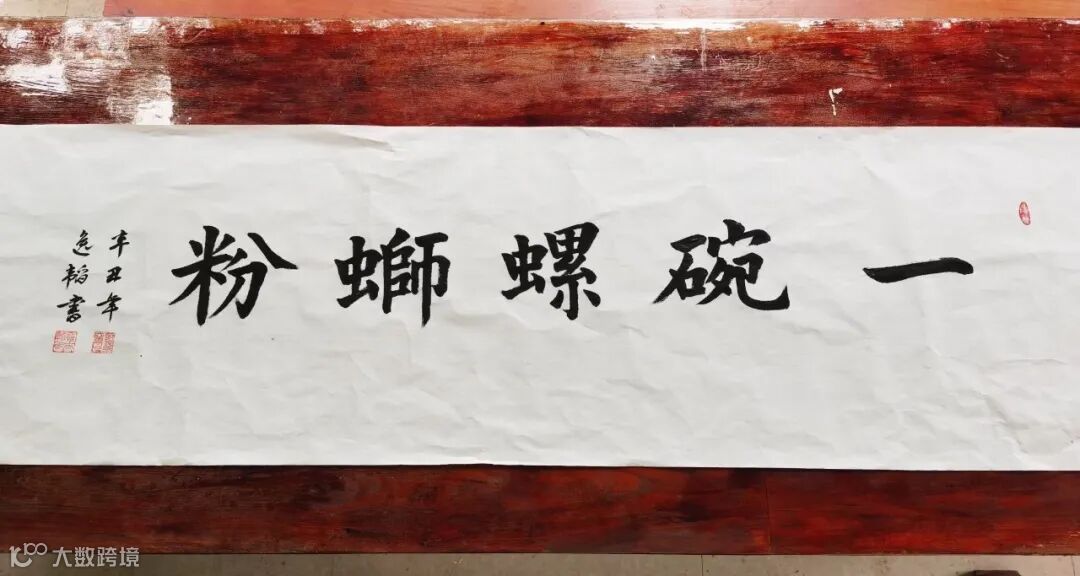 一碗螺螄粉
辛丑年
逸韜書
大数跨境